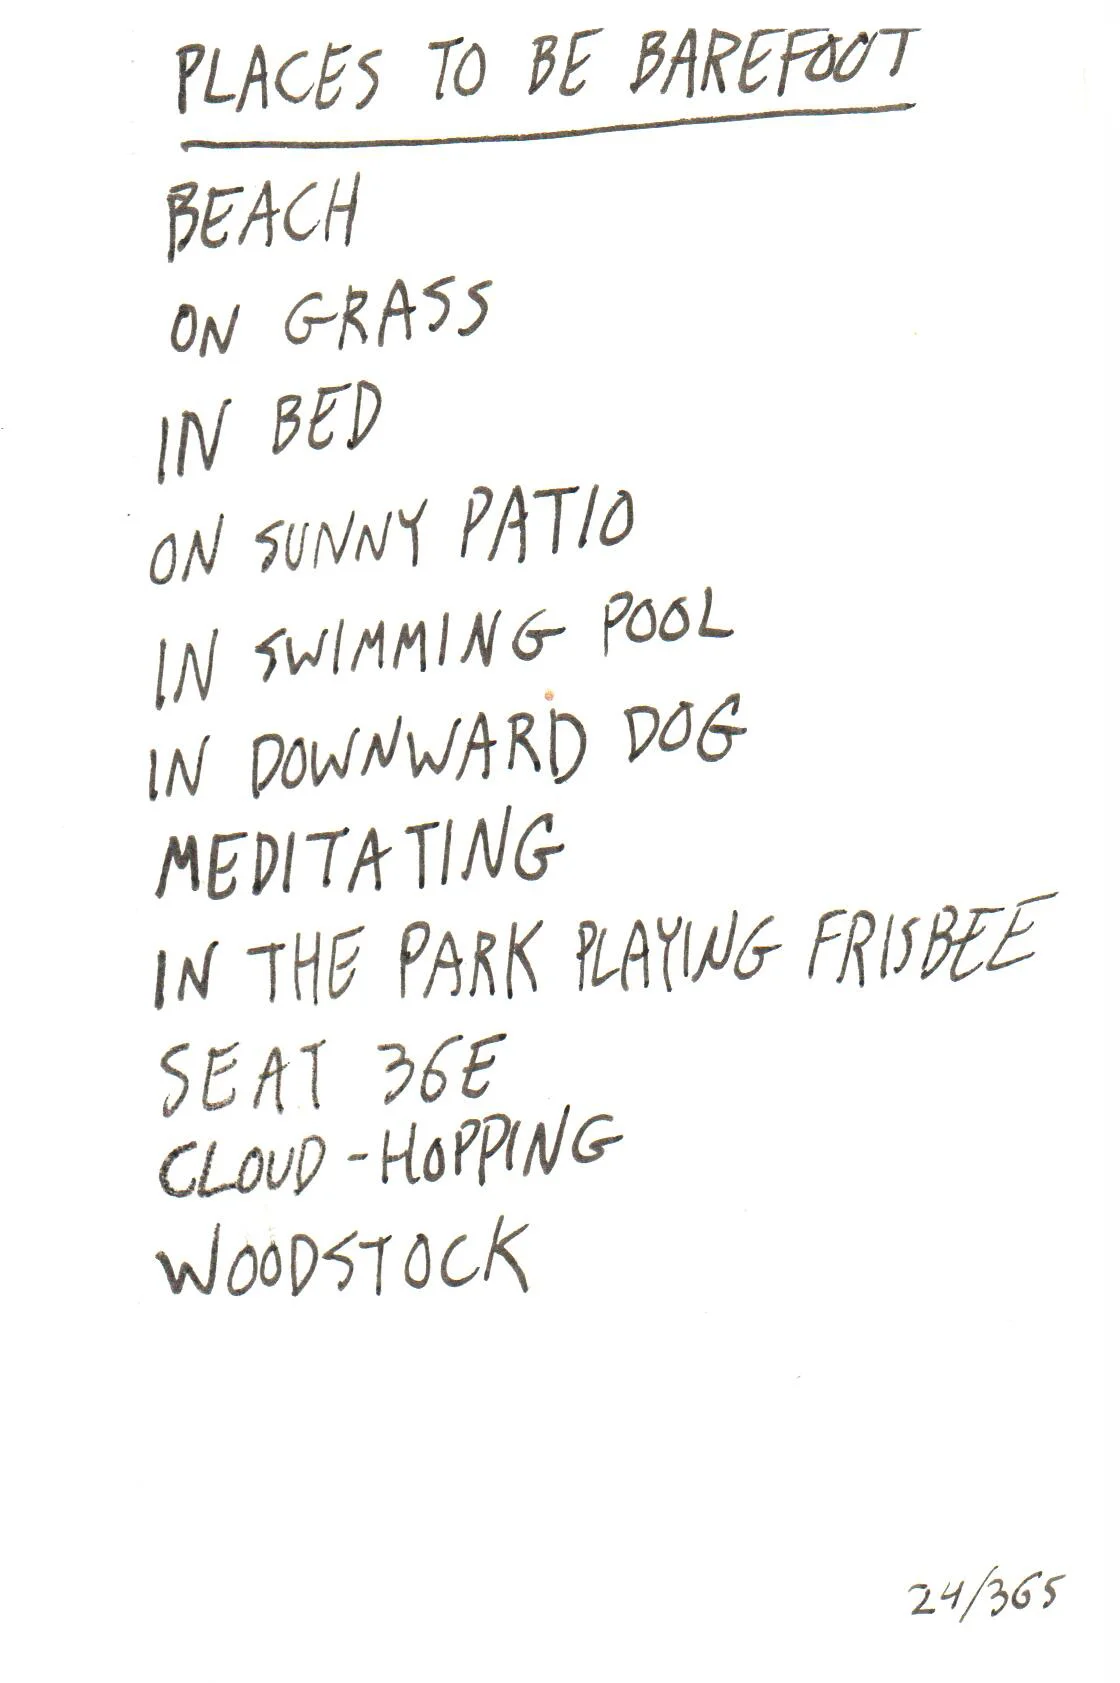 PLACES TO BE BAREFOOT
BEACH
ON GRASS
IN BED
ON SUNNY PATIO
IN SWIMMING POOL
IN DOWNWARD DOG
MEDITATING
IN THE PARK PLAYING FRISBEE
SEAT 36E
CLOUD-HOPPING
WOODSTOCK
24/365